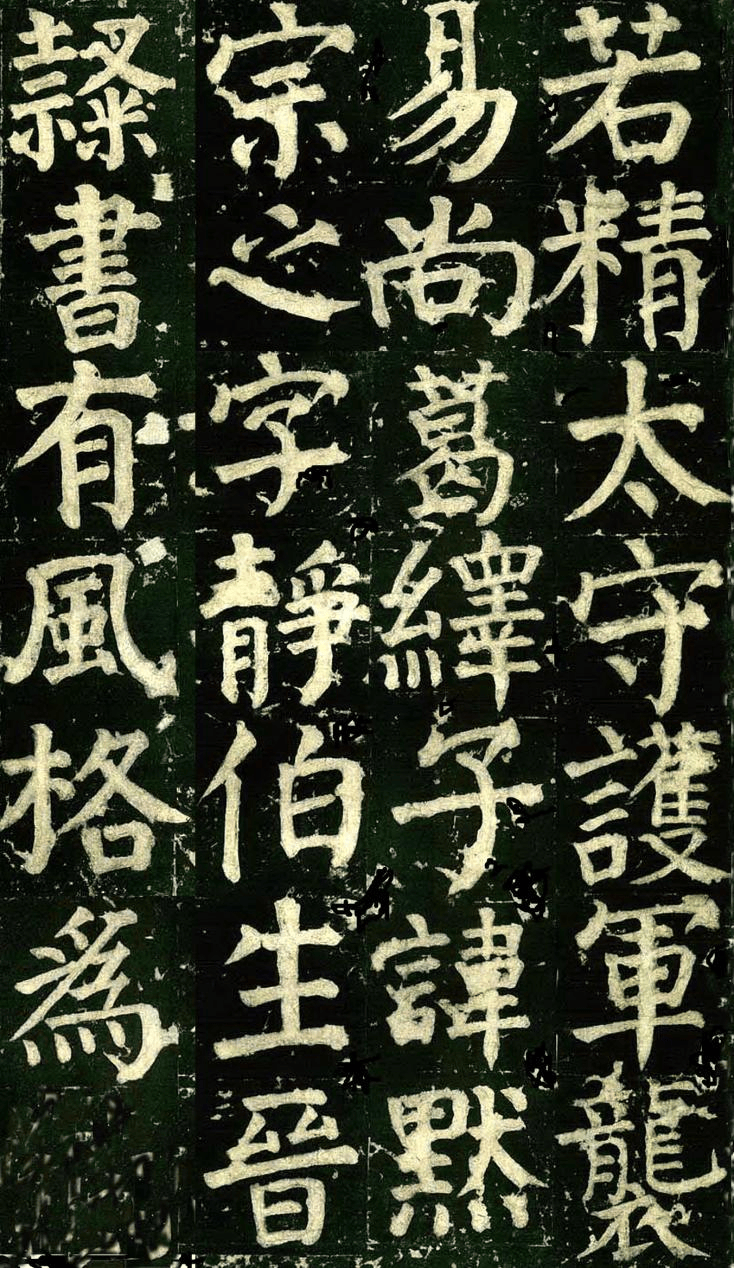 若精太守護軍襲
易尚葛繹子諱黙
宗之字靜伯生晉
隸書有風格為